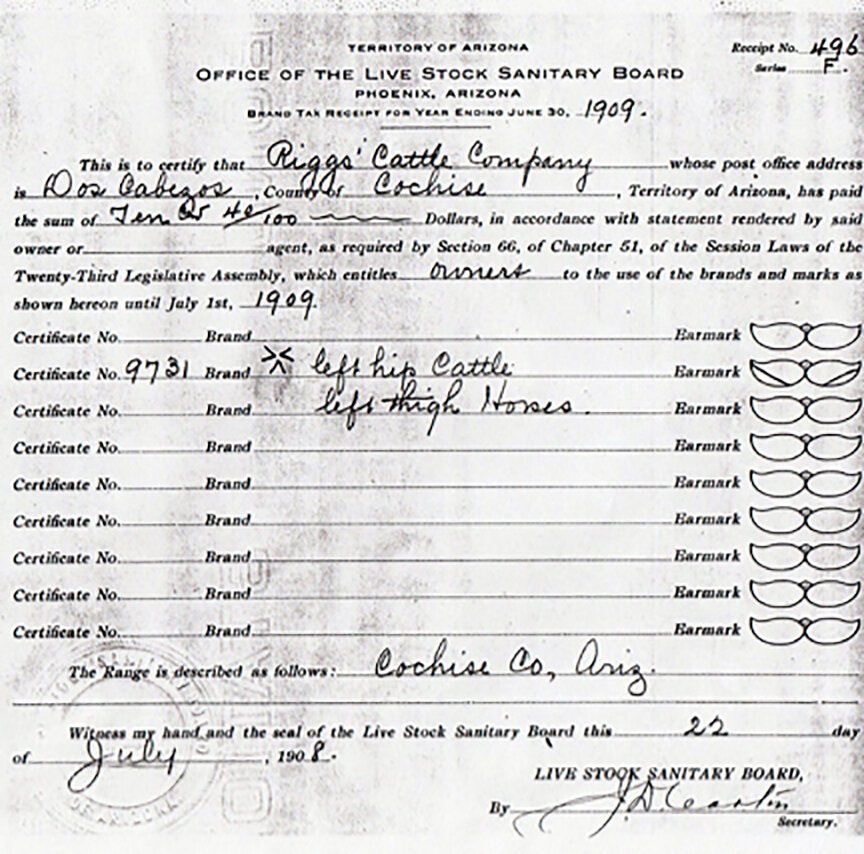 TERRITORY OF ARIZONA
Receipt No. 496
OFFICE OF THE LIVE STOCK SANITARY BOARD
Series F.
PHOENIX, ARIZONA
BRAND TAX RECEIPT FOR YEAR ENDING JUNE 30, 1909.
This is to certify that Riggs' Cattle Company whose post office address
is Dos Cabezos, County of Cochise, Territory of Arizona, has paid
the sum of Ten & 40/100 Dollars, in accordance with statement rendered by said
owner or agent, as required by Section 66, of Chapter 51, of the Session Laws of the
Twenty-Third Legislative Assembly, which entitles owners to the use of the brands and marks as
shown hereon until July 1st, 1909.
Certificate No. Brand Earmark
Certificate No. 9731 Brand left hip Cattle Earmark
Certificate No. Brand left thigh Horses. Earmark
Certificate No. Brand Earmark
Certificate No. Brand Earmark
Certificate No. Brand Earmark
Certificate No. Brand Earmark
Certificate No. Brand Earmark
Certificate No. Brand Earmark
The Range is described as follows: Cochise Co, Ariz.
Witness my hand and the seal of the Live Stock Sanitary Board this 22 day
of July, 1908.
LIVE STOCK SANITARY BOARD,
By
Secretary.